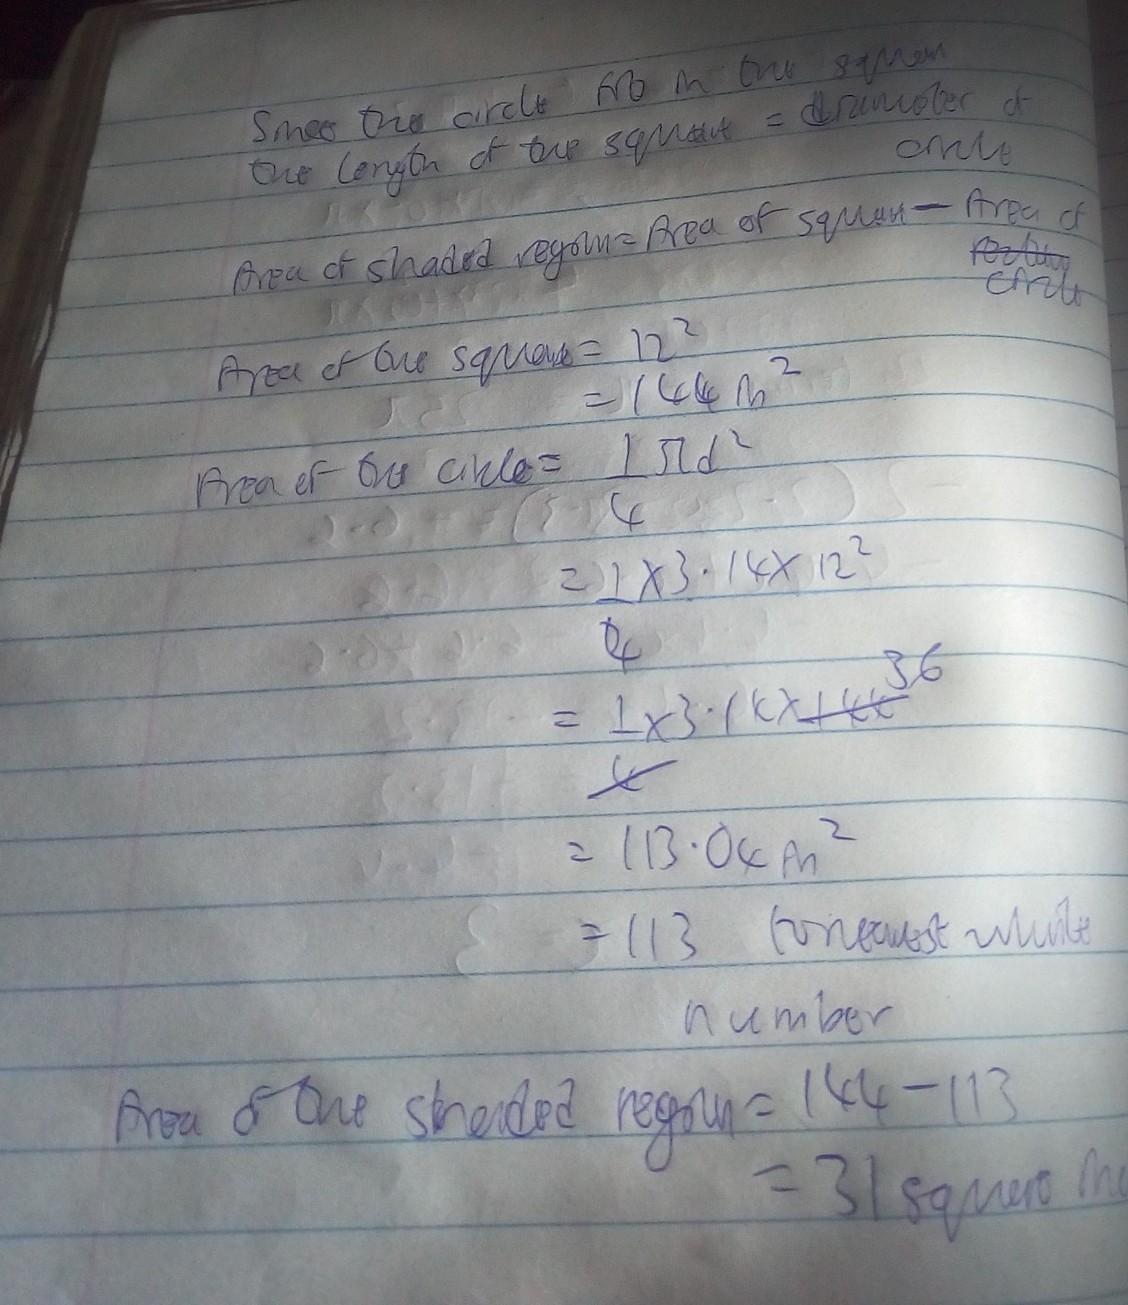 Since the circle fits in the square
the length of the square = diameter of
circle
Area of shaded region = Area of square - Area of
circle
Area of the square = 12²
= 144 m²
Area of the circle = 1πd²
4
= 1 x 3.14 x 12²
4
= 1 x 3.14 x 144 36
4
= 113.04 m²
= 113 to nearest whole
number
Area of the shaded region = 144 - 113
= 31 square m